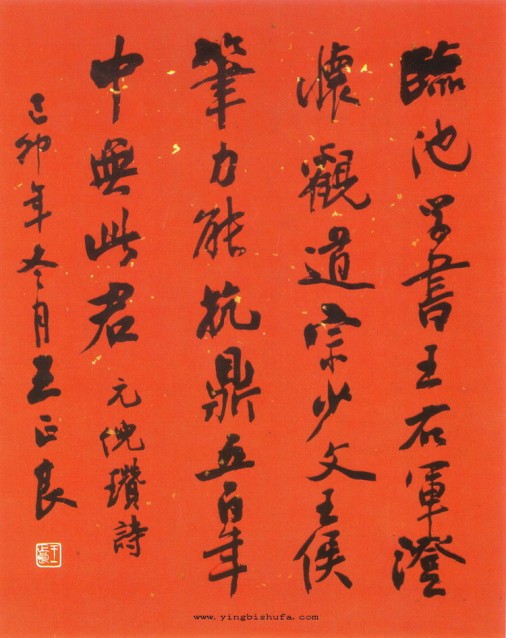 臨池學書王右軍澄
懷觀道宗少文王侯
筆力能抗鼎五百年
中無此君
元倪瓚詩
己卯年冬月王正良
www.yingbishufa.com